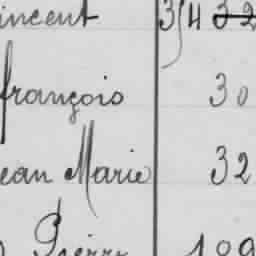 incent 34 32
françois 30
ean Marie 32
Pierre 109